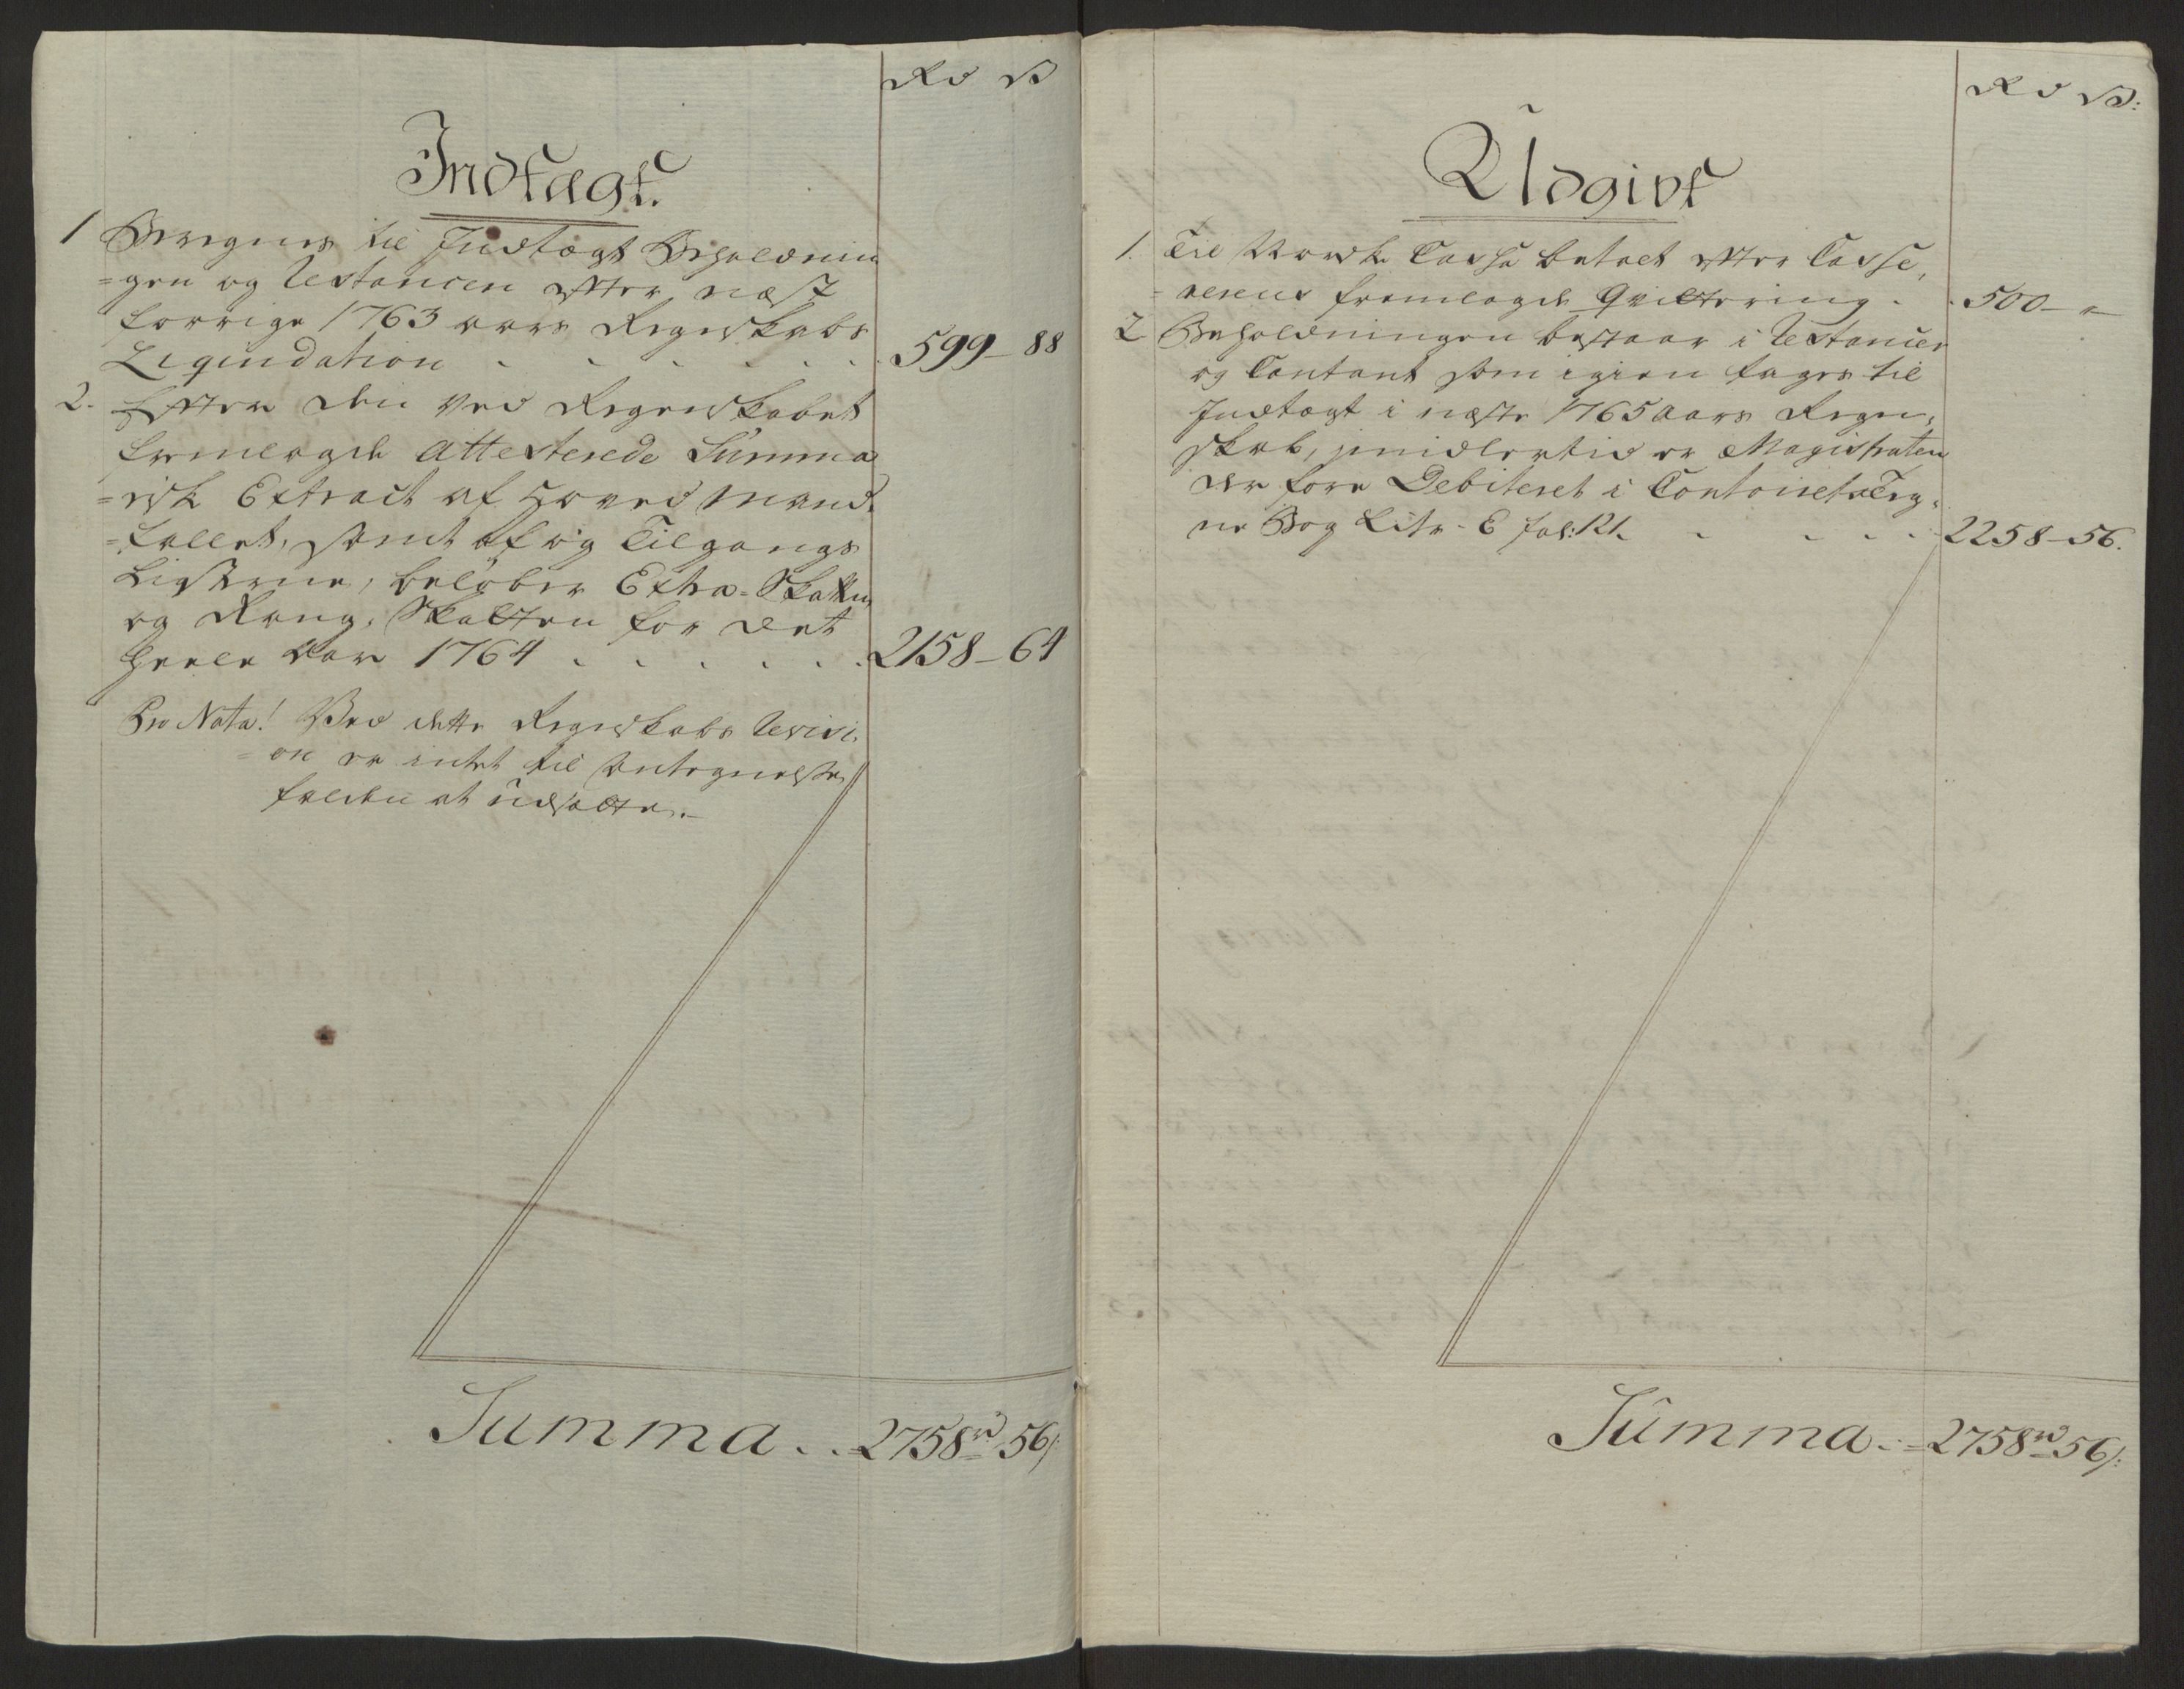 Rd ß
Indtægt.
1 Beregnes til Indtægt Beholdnin
=gen og Restancen efter næst
forrige 1763 aars Regnskabs
Liqvidation . . . . . . 599 - 88
2. Efter den ved Regnskabet
fremlagde attesterede Summa
=risk Extract af Hoved Mand-
=tallet, samt af og Tilgangs
Listerne, beløber Extra-Skatten
og Rang-Skatten for det
heele Aar 1764 . . . . . . 2158 - 64
Pro Nota! Ved dette Regnskabs Revisi-
=on er intet til Antegnelse
falden at udsætte.
Summa . . 2758 rd 56 ß:
Rd ß:
Udgivt
1. Til Cassa betalt efter Casse-
=rerens fremlagde Qvittering . . 500 - "
2 Beholdningen bestaar i Restancer
og Contant som igien tages til
Indtægt i næste 1765 Aars Regn-
skab, imidlertid er Magistraten
der fore Debiteret i Contoirets
ne Bog Litr. E fol: 121. . . . . 2258 - 56.
Summa . . 2758 rd 56 ß: